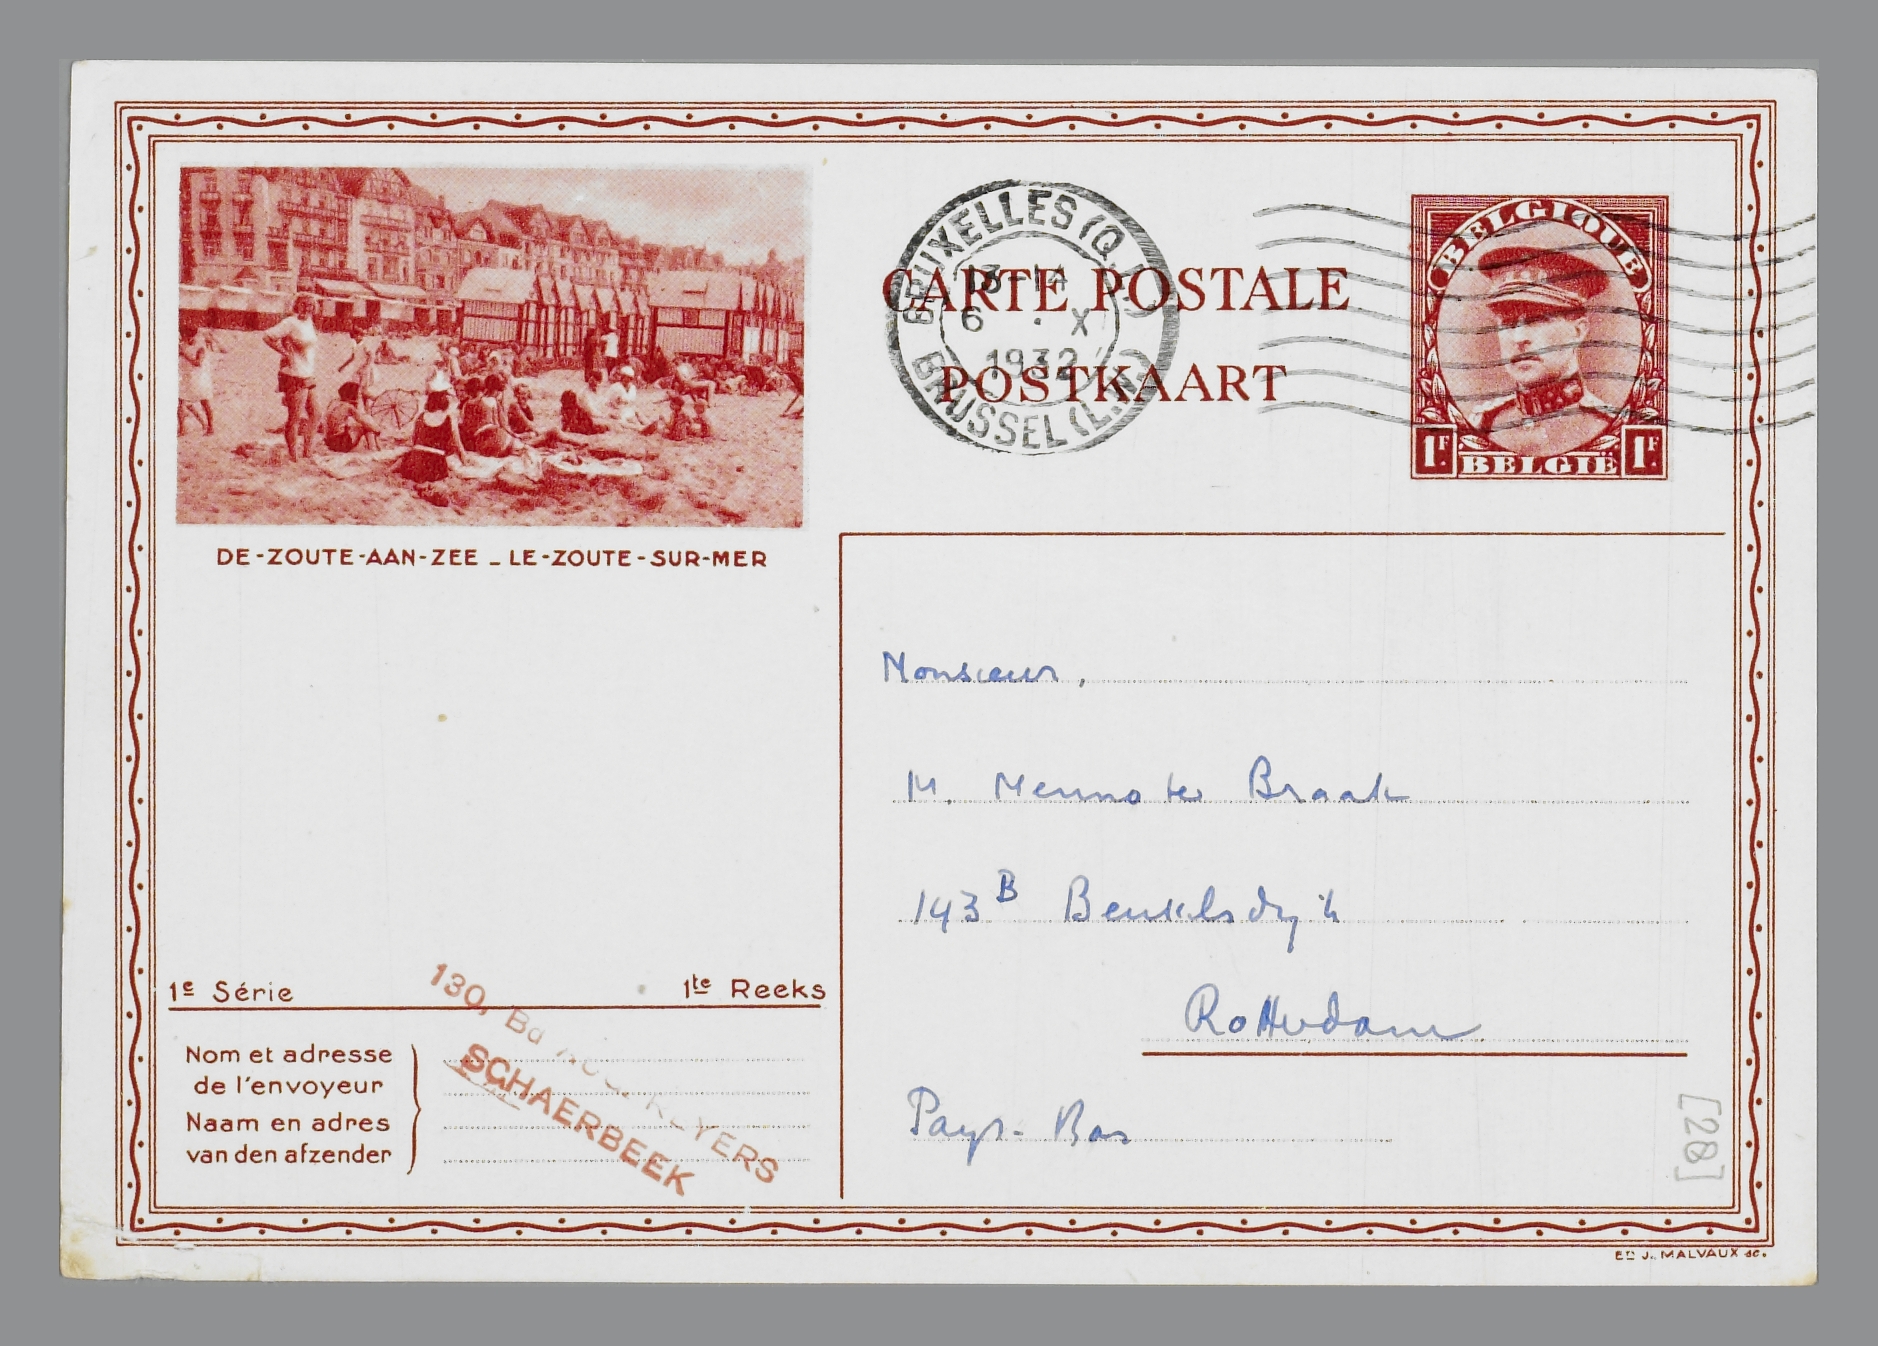 BRUXELLES (Q.L.)
13-14
6 · X
1932
BRUSSEL (L.W.)
CARTE POSTALE
POSTKAART
BELGIQUE
1F 1F
BELGIË
DE-ZOUTE-AAN-ZEE _ LE-ZOUTE-SUR-MER
Monsieur,
M. Menno ter Braak
143 B Beukelsdijk
Rotterdam
Pays-Bas
1e Série 1te Reeks
130, Bd AUG. REYERS
SCHAERBEEK
Nom et adresse
de l'envoyeur
Naam en adres
van den afzender
[28]
Ed J. MALVAUX sc.